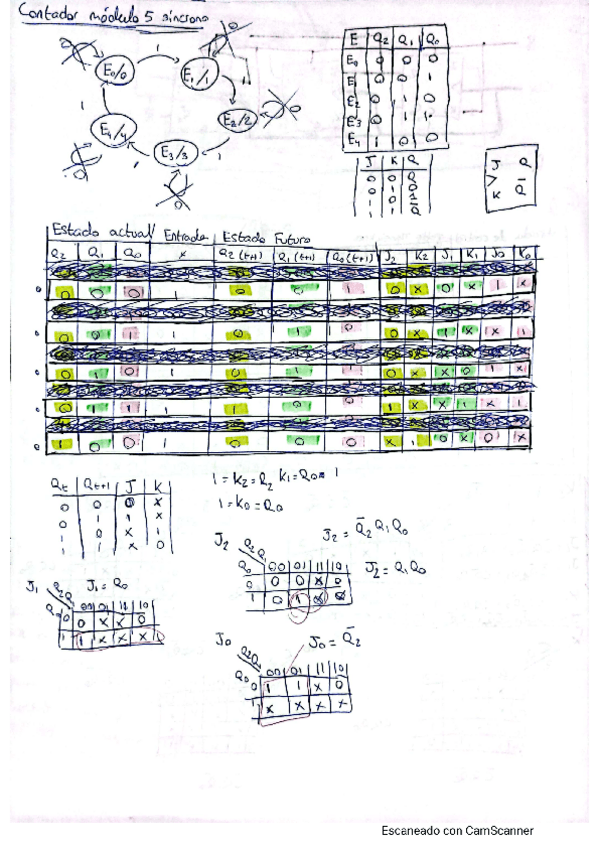 Contador módulo 5 síncrono
E0/0
1
E1/1
1
E2/2
1
E3/3
1
E4/4
1
0
0
0
0
0
E Q2 Q1 Q0
E0 0 0 0
E1 0 0 1
E2 0 1 0
E3 0 1 1
E4 1 0 0
J K Q
0 0 Q
0 1 0
1 0 1
1 1 Q̄
J Q
> 
K Q̄
Estado actual Entrada Estado Futuro
Q2 Q1 Q0 x Q2(t+1) Q1(t+1) Q0(t+1) J2 K2 J1 K1 J0 K0
0 0 0 1 0 0 1 0 x 0 x 1 x
0 0 1 1 0 1 0 0 x 1 x x 1
0 1 0 1 0 1 1 0 x x 0 1 x
0 1 1 1 1 0 0 1 x x 1 x 1
1 0 0 1 0 0 0 x 1 0 x 0 x
Qt Qt+1 J K
0 0 0 x
0 1 1 x
1 0 x 1
1 1 x 0
1 = K2 = Q2 K1 = Q0 = 1
1 = K0 = Q0
J2 = Q̄2 Q1 Q0
J2 = Q1 Q0
J2
Q2 Q1
Q0 00 01 11 10
0 0 0 x 0
1 0 1
J1
J1 = Q0
Q2 Q1
Q0 00 01 11 10
0 0 x x 0
1 1 x x x
J0
J0 = Q̄2
Q2Q1
Q0 00 01 11 10
0 1 1 x 0
1 x x x x
Escaneado con CamScanner